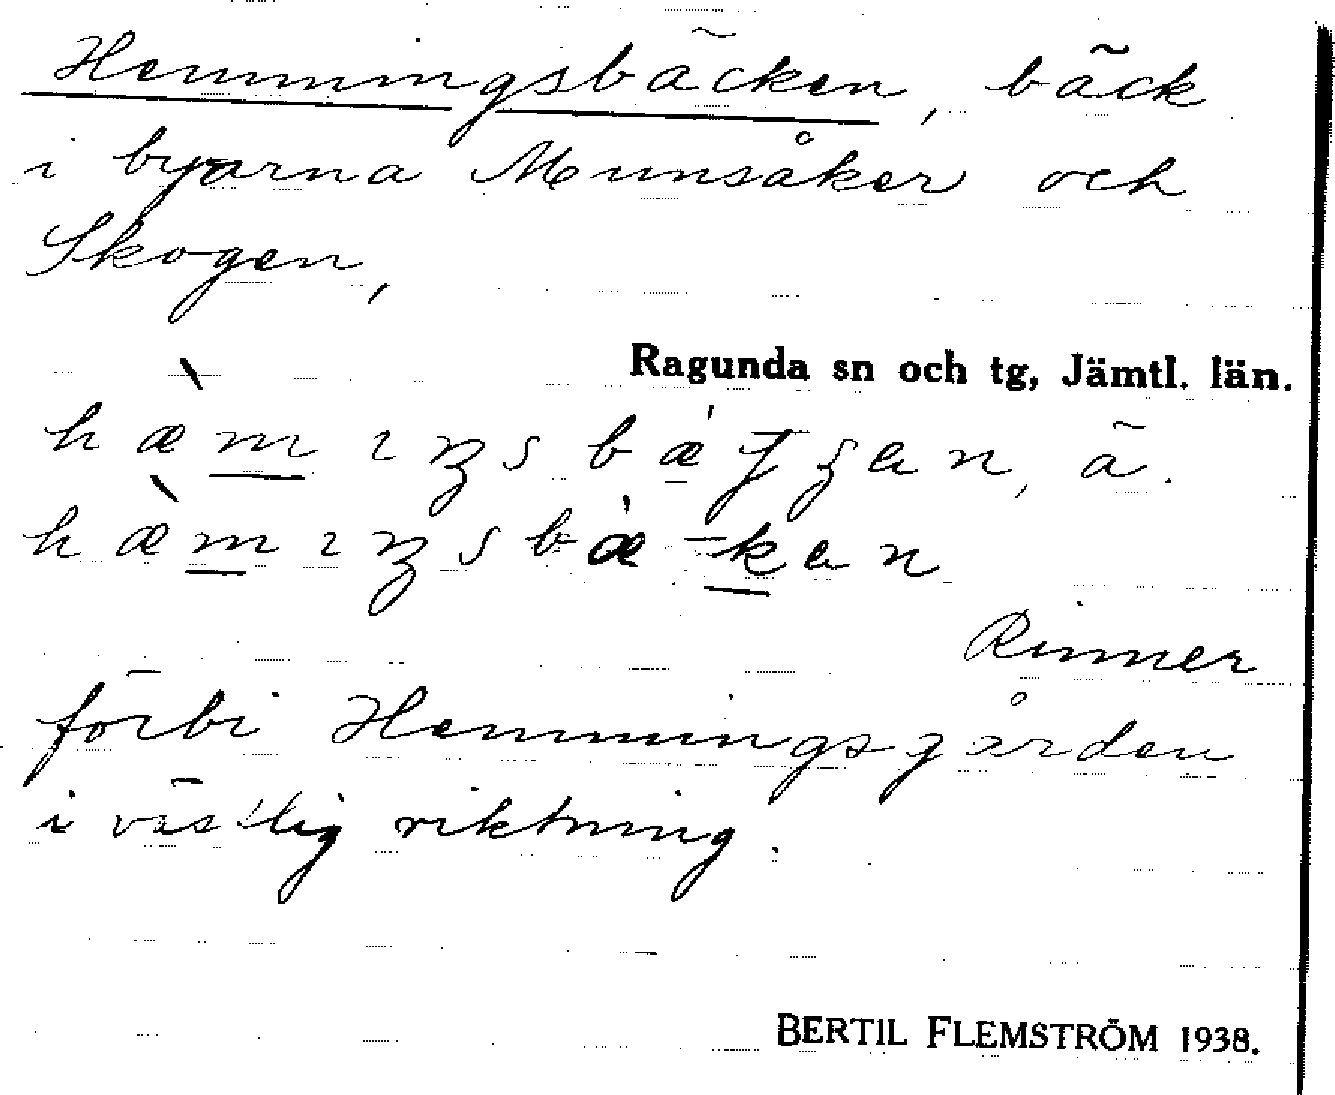 Hemmingsbäcken, bäck
i byarna Munsåker och
Skogen,
Ragunda sn och tg, Jämtl. län.
ä.
Rinner
förbi Hemmingsgården
i västlig riktning.
BERTIL FLEMSTRÖM 1938.